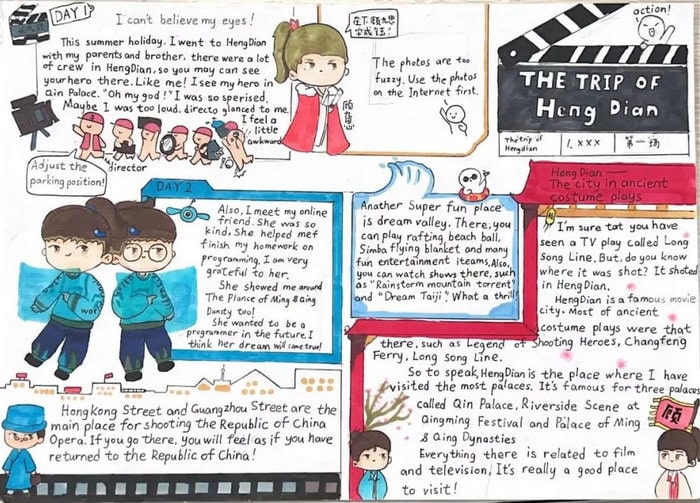 DAY 1
I can't believe my eyes!
This summer holiday. I went to HengDian
with my parents and brother. there were a lot
of crew in HengDian, so you may can see
your hero there. Like me! I see my hero in
Qin Palace. "Oh my god!" I was so sperised.
Maybe I was too loud, directo glanced to me.
I feel a
little
awkward
director
Adjust the
parking position!
The photos are too
fuzzy. Use the photos
on the Internet first.
action!
THE TRIP OF
Heng Dian
The trip of
Hengdian
1. xxx
第一场
DAY 2
Also, I meet my online
friend. She was so
kind. She helped me
finish my homework on
programming. I am very
grateful to her.
She showed me around
The Plance of Ming & Qing
Dansty too!
She wanted to be a
programmer in the future. I
think her dream will come true!
Another Super fun place
is dream valley. There, you
can play rafting, beach ball,
Simba flying blanket and many
fun entertainment iteams. Also,
you can watch shows there, such
as "Rainstorm mountain torrent"
and "Dream Taiji". What a thrill!
Heng Dian —
The city in ancient
costume plays
I'm sure tat you have
seen a TV play called Long
Song Line. But, do you know
where it was shot? It shoted
in HengDian.
HengDian is a famous movie
city. Most of ancient
costume plays were that
there, such as Legend of Shooting Heroes, Changfeng
Ferry, Long song Line.
So to speak, HengDian is the place where I have
visited the most palaces. It's famous for three palaces
called Qin Palace, Riverside Scene at
Qingming Festival and Palace of Ming
& Qing Dynasties
Everything there is related to film
and television. It's really a good place
to visit!
顾
HongKong Street and Guangzhou Street are the
main place for shooting the Republic of China
Opera. If you go there, you will feel as if you have
returned to the Republic of China!